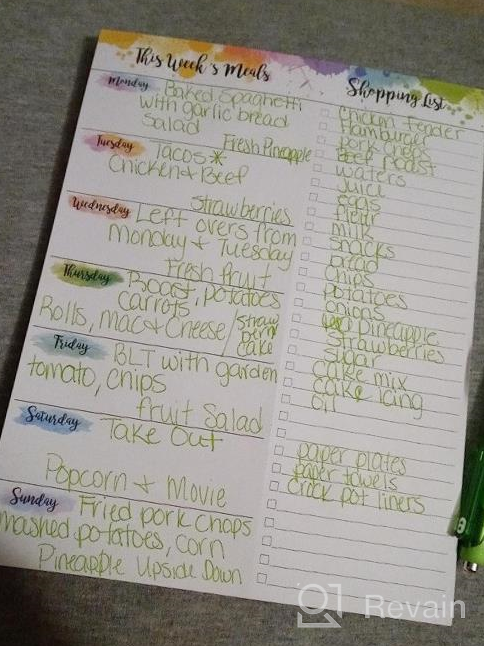 This Week's Meals
Monday Baked Spaghetti
with garlic bread
Salad
Fresh Pineapple
Tuesday Tacos*
Chicken + Beef
Strawberries
Wednesday Left overs from
Monday + Tuesday
Fresh fruit
Thursday Roast, potatoes
carrots
Rolls, Mac & Cheese / Straw
cake
Friday BLT with garden
tomato, chips
fruit Salad
Saturday Take Out
Popcorn + Movie
Sunday Fried pork chops
mashed potatoes, corn
Pineapple Upside Down
Shopping List
Chicken Tender
Hamburger
pork chops
Beef Roast
waters
juice
eggs
flour
milk
snacks
bread
chips
potatoes
onions
pineapple
Strawberries
sugar
cake mix
cake icing
oil
paper plates
paper towels
crock pot liners
Revain